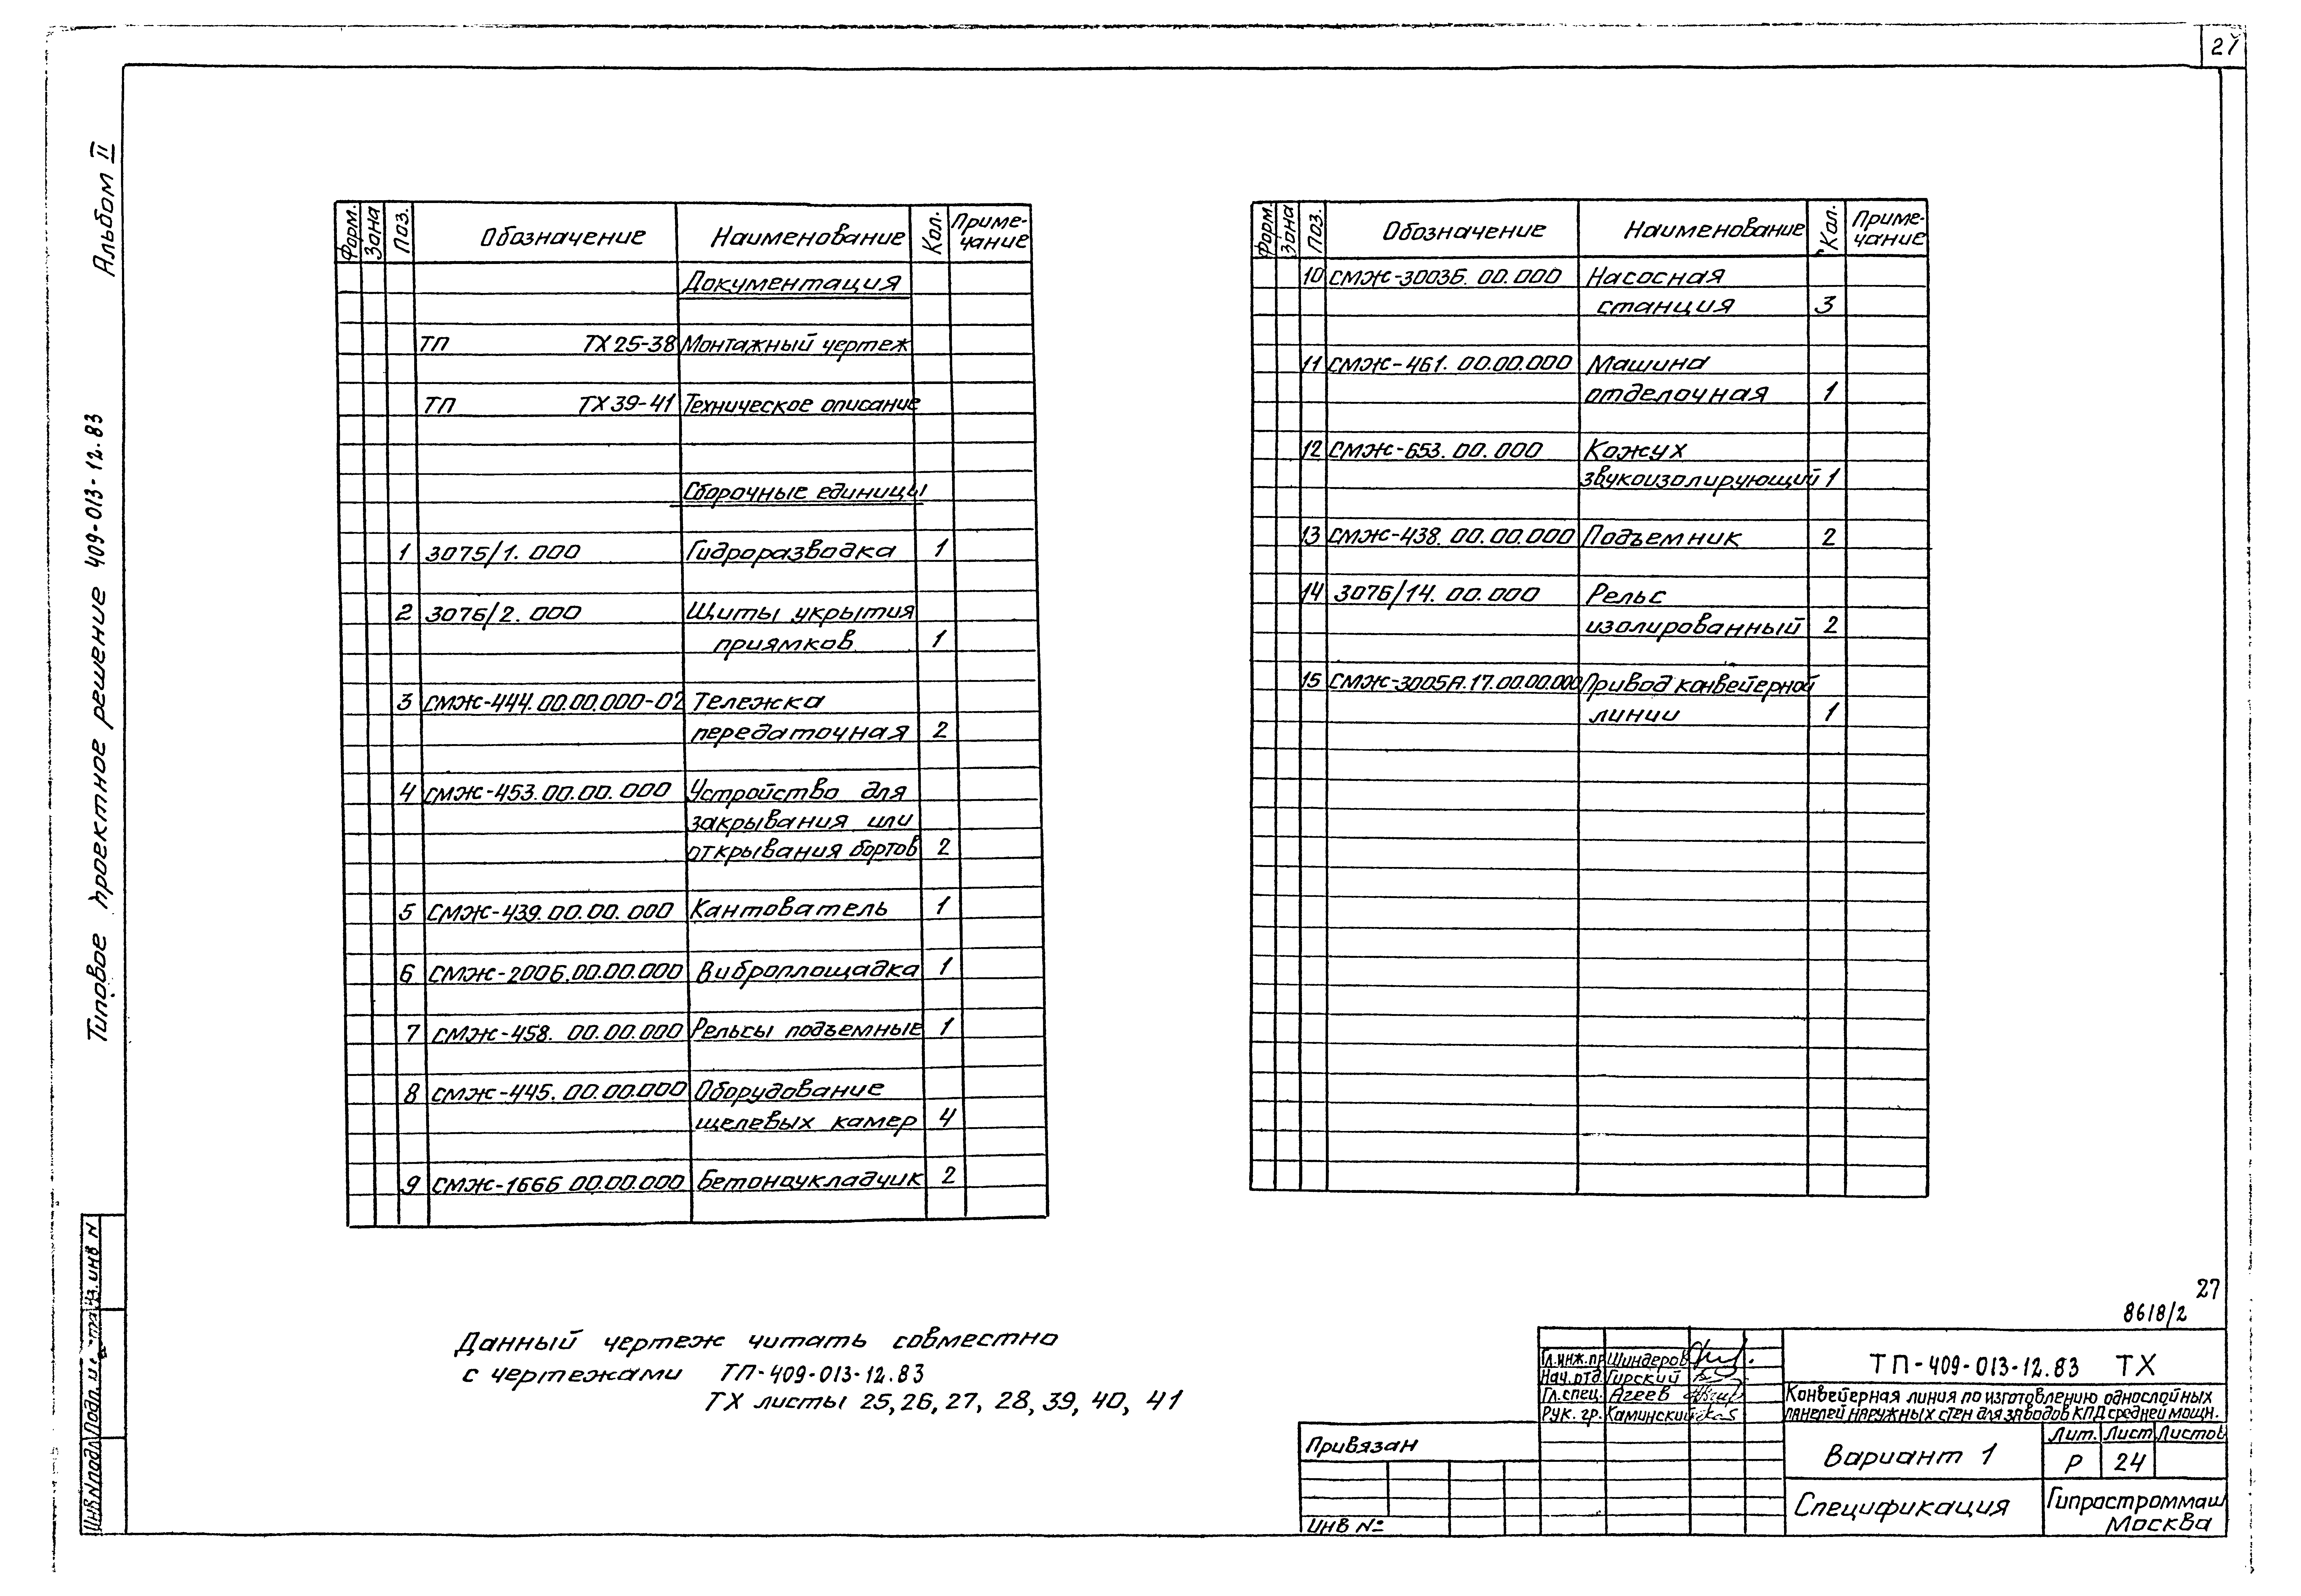 27
Альбом II
Типовое проектное решение 409-013-12.83
Форм. Зона Поз. Обозначение Наименование Кол. Приме-
чание
Документация
ТП ТХ 25-38 Монтажный чертеж
ТП ТХ 39-41 Техническое описание
Сборочные единицы
1 3075/1. 000 Гидроразводка 1
2 3076/2. 000 Щиты укрытия
приямков 1
3 СМЖ-444.00.00.000-02 Тележка
передаточная 2
4 СМЖ-453.00.00.000 Устройство для
закрывания или
открывания бортов 2
5 СМЖ-439.00.00.000 Кантователь 1
6 СМЖ-200Б.00.00.000 Виброплощадка 1
7 СМЖ-458. 00.00.000 Рельсы подъемные 1
8 СМЖ-445. 00.00.000 Оборудование
щелевых камер 4
9 СМЖ-166Б 00.00.000 Бетоноукладчик 2
Форм. Зона Поз. Обозначение Наименование Кол. Приме-
чание
10 СМЖ-3003Б. 00.000 Насосная
станция 3
11 СМЖ-461. 00.00.000 Машина
отделочная 1
12 СМЖ-653. 00.000 Кожух
звукоизолирующий 1
13 СМЖ-438. 00.00.000 Подъемник 2
14 3076/14. 00.000 Рельс
изолированный 2
15 СМЖ-3005А.17.00.00.000 Привод конвейерной
линии 1
Данный чертеж читать совместно
с чертежами ТП-409-013-12.83
ТХ листы 25, 26, 27, 28, 39, 40, 41
27
8618/2
Гл.инж.пр Шиндеров
Нач.отд. Гирский
Гл.спец. Агеев
Рук. гр. Каминский
ТП-409-013-12.83 ТХ
Конвейерная линия по изготовлению однослойных
панелей наружных стен для заводов КПД средней мощн.
Вариант 1
Лит. Лист Листов
Р 24
Спецификация
Гипростроммаш
Москва
Привязан
Инв №
Инв N подл. Подп. и Вз.инв N